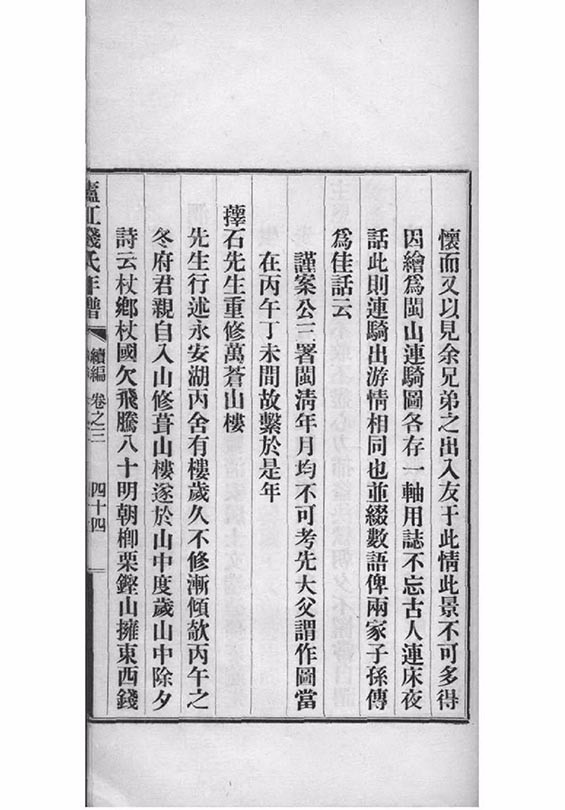 懷而又以見余兄弟之出入友于此情此景不可多得
因繪爲閩山連騎圖各存一軸用誌不忘古人連床夜
話此則連騎出游情相同也並綴數語俾兩家子孫傳
爲佳話云
謹案公三署閩清年月均不可考先大父謂作圖當
在丙午丁未間故繫於是年
蘀石先生重修萬蒼山樓
先生行述永安湖丙舍有樓歲久不修漸傾欹丙午之
冬府君親自入山修葺山樓遂於山中度歲山中除夕
詩云杖鄉杖國欠飛騰八十明朝楖栗鏗山擁東西錢
廬江錢氏年譜
續編
卷之三
四十四